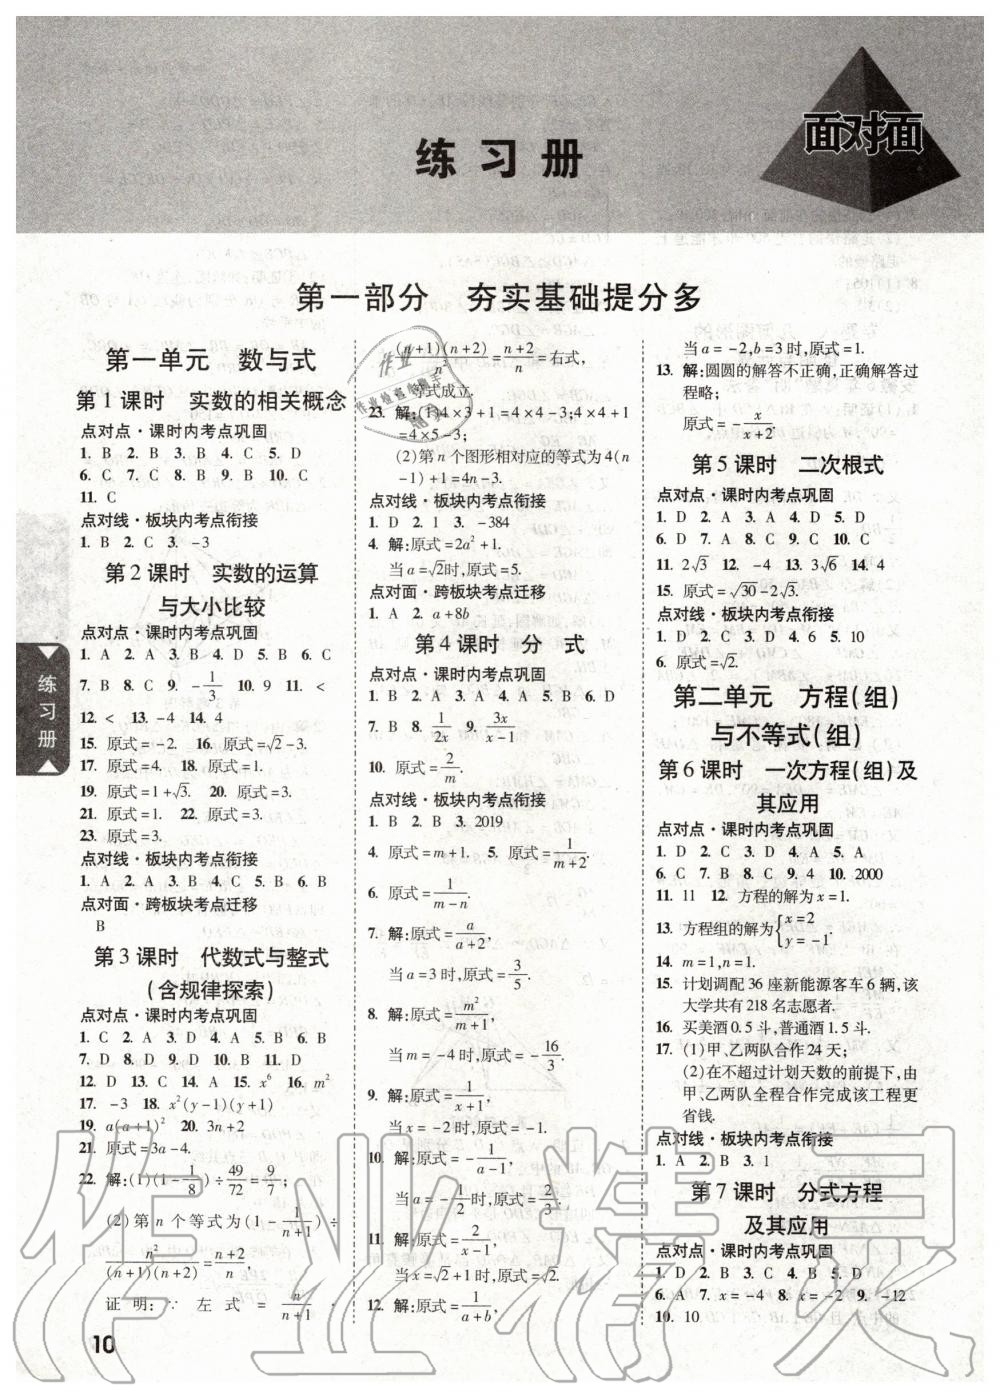 面对面
练习册
第一部分 夯实基础提分多
第一单元 数与式
第1课时 实数的相关概念
点对点·课时内考点巩固
1. B 2. B 3. B 4. C 5. D
6. C 7. C 8. B 9. B 10. C
11. C
点对线·板块内考点衔接
1. B 2. C 3. -3
第2课时 实数的运算
与大小比较
点对点·课时内考点巩固
1. A 2. A 3. B 4. D 5. B 6. C
7. B 8. C 9. -1/3 10. 9 11. <
12. < 13. -4 14. 4
15. 原式=-2. 16. 原式=√2-3.
17. 原式=4. 18. 原式=1.
19. 原式=1+√3. 20. 原式=3.
21. 原式=1. 22. 原式=3.
23. 原式=3.
点对线·板块内考点衔接
1. A 2. A 3. B 4. C 5. B 6. B
点对面·跨板块考点迁移
B
第3课时 代数式与整式
(含规律探索)
点对点·课时内考点巩固
1. C 2. A 3. D 4. A 5. B 6. B
7. D 8. D 9. D 10. B 11. D
12. D 13. C 14. A 15. x⁶ 16. m²
17. -3 18. x²(y-1)(y+1)
19. a(a+1)² 20. 3n+2
21. 原式=3a-4.
22. 解:(1)(1-1/8)÷49/72=9/7;
(2)第n个等式为(1-1/(n+1))÷
n²/((n+1)(n+2))=(n+2)/n,
证明:∵左式=n/(n+1)·
((n+1)(n+2))/n²=(n+2)/n=右式,
等式成立.
23. 解:(1)4×3+1=4×4-3;4×4+1
=4×5-3;
(2)第n个图形相对应的等式为4(n
-1)+1=4n-3.
点对线·板块内考点衔接
1. D 2. 1 3. -384
4. 解:原式=2a²+1.
当a=√2时,原式=5.
点对面·跨板块考点迁移
1. A 2. a+8b
第4课时 分 式
点对点·课时内考点巩固
1. B 2. A 3. A 4. A 5. B 6. D
7. B 8. 1/(2x) 9. 3x/(x-1)
10. 原式=2/m.
点对线·板块内考点衔接
1. B 2. B 3. 2019
4. 原式=m+1. 5. 原式=1/(m+2).
6. 原式=1/(m-n).
7. 解:原式=a/(a+2),
当a=3时,原式=3/5.
8. 解:原式=m²/(m+1),
当m=-4时,原式=-16/3.
9. 解:原式=1/(x+1),
当x=-2时,原式=-1.
10. 解:原式=-1/(a-1),
当a=-1/2时,原式=2/3.
11. 解:原式=2/(x-1),
当x=√2+1时,原式=√2.
12. 解:原式=1/(a+b),
当a=-2,b=3时,原式=1.
13. 解:圆圆的解答不正确,正确解答过
程略;
原式=-x/(x+2).
第5课时 二次根式
点对点·课时内考点巩固
1. D 2. A 3. A 4. D 5. D
6. D 7. A 8. C 9. C 10. C
11. 2√3 12. -4 13. 3√6 14. 4
15. 原式=√30-2√3.
点对线·板块内考点衔接
1. D 2. C 3. D 4. 6 5. 10
6. 原式=√2.
第二单元 方程(组)
与不等式(组)
第6课时 一次方程(组)及
其应用
点对点·课时内考点巩固
1. D 2. C 3. D 4. A 5. A
6. C 7. B 8. C 9. 4 10. 2000
11. 11 12. 方程的解为x=1.
13. 方程组的解为{x=2 y=-1.
14. m=1,n=1.
15. 计划调配36座新能源客车6辆,该
大学共有218名志愿者.
16. 买美酒0.5斗,普通酒1.5斗.
17. (1)甲、乙两队合作24天;
(2)在不超过计划天数的前提下,由
甲、乙两队全程合作完成该工程更
省钱.
点对线·板块内考点衔接
1. A 2. B 3. 1
第7课时 分式方程
及其应用
点对点·课时内考点巩固
1. D 2. B 3. C 4. B 5. D
6. A 7. x=-4 8. x=-2 9. -12
10. 10
练习册
10
作业精灵